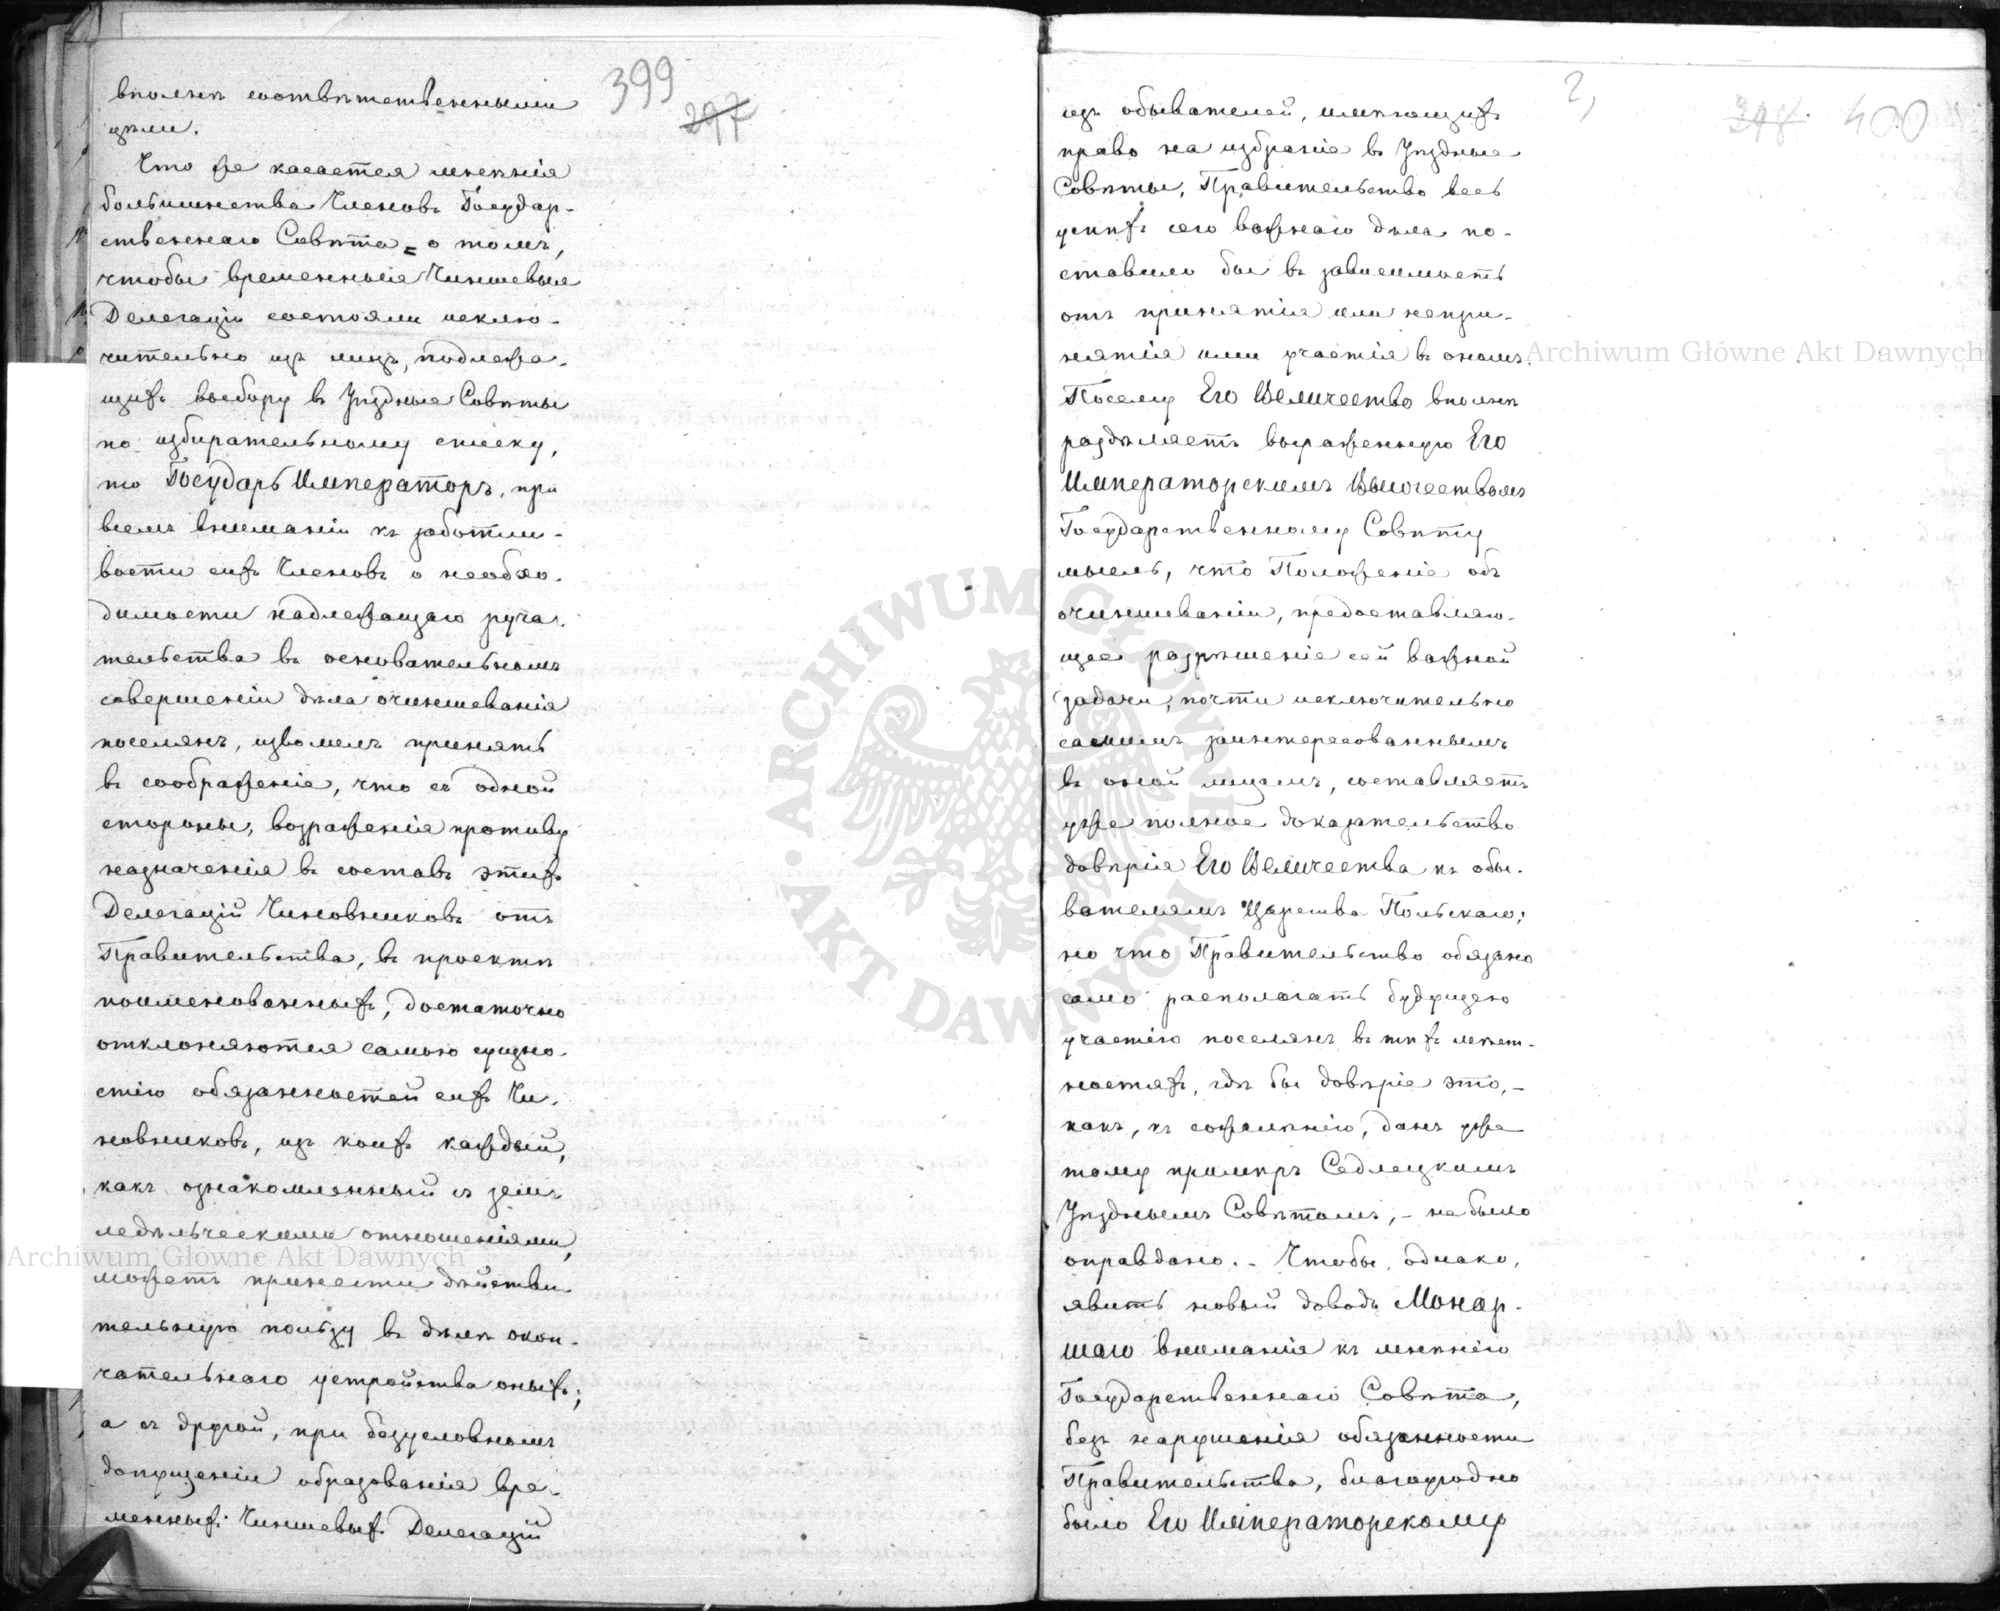 399
297
вполнѣ соотвѣтственными
цѣли.
Что же касается мнѣнія
большинства Членовъ Государ-
ственнаго Совѣта = о томъ,
чтобы временныя Чиншевыя
Делегаціи состояли исклю-
чительно изъ лицъ, подлежа-
щихъ выбору въ Уѣздные Совѣты
по избирательному списку,
то Государь Императоръ, при
всемъ вниманіи къ заботли-
вости сихъ Членовъ о необхо-
димости надлежащаго руча-
тельства въ основательномъ
совершеніи дѣла очиншеванія
поселянъ, изволилъ принять
въ соображеніе, что съ одной
стороны, возраженія противу
назначенія въ составъ этихъ
Делегацій Чиновниковъ отъ
Правительства, въ проектѣ
поименованныхъ, достаточно
отклоняются самою сущно-
стію обязанностей сихъ Чи-
новниковъ, изъ коихъ каждый,
какъ ознакомленный съ земле-
ледѣльческими отношеніями,
можетъ принести дѣйстви-
тельную пользу въ дѣлѣ окон-
чательнаго устройства оныхъ;
а съ другой, при безусловномъ
допущеніи образованія вре-
менныхъ Чиншевыхъ Делегацій
2,
298. 400
изъ обывателей, имѣющихъ
право на избраніе въ Уѣздные
Совѣты, Правительство весь
успѣхъ сего важнаго дѣла по-
ставило бы въ зависимость
отъ принятія или непри-
нятія ими участія въ ономъ.
Посему Его Величество вполнѣ
раздѣляетъ выраженную Его
Императорскимъ Высочествомъ
Государственному Совѣту
мысль, что Положеніе объ
очиншеваніи, предоставляю-
щее разрѣшеніе сей важной
задачи, почти исключительно
самимъ заинтересованнымъ
въ оной лицамъ, составляетъ
уже полное доказательство
довѣрія Его Величества къ обы-
вателямъ Царства Польскаго;
но что Правительство обязано
само располагать будущею
участію поселянъ въ тѣхъ мѣст-
ностяхъ, гдѣ бы довѣріе это, -
какъ, къ сожалѣнію, данъ уже
тому примѣръ Седлецкимъ
Уѣзднымъ Совѣтомъ, - не было
оправдано. - Чтобы, однако,
явить новый доводъ Монар-
шаго вниманія къ мнѣнію
Государственнаго Совѣта,
безъ нарушенія обязанности
Правительства, благоугодно
было Его Императорскому
Archiwum Główne Akt Dawnych
Archiwum Główne Akt Dawnych
ARCHIWUM GŁÓWNE AKT DAWNYCH